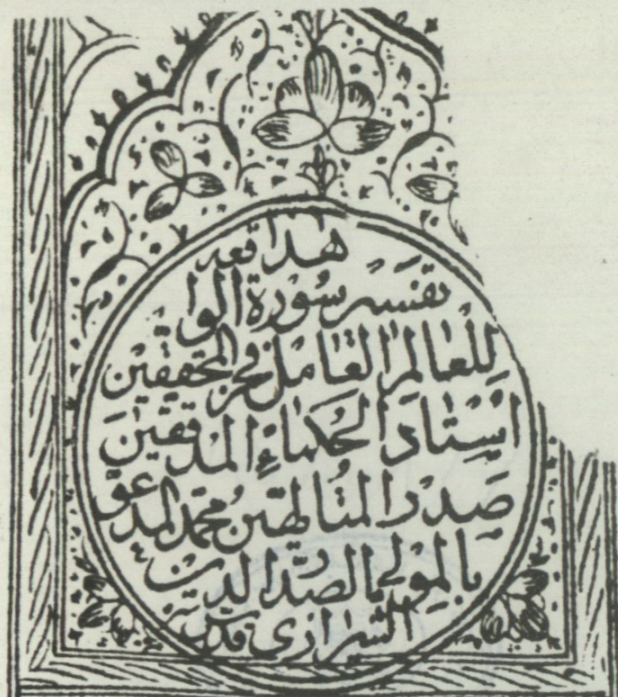 هذا
تفسیر سورة الواقعه
للعالم العامل فخر المحققین
استاد الحکماء المدققین
صدر المتالهین محمد المدعو
بالمولی الصدر الدین
الشیرازی قدس